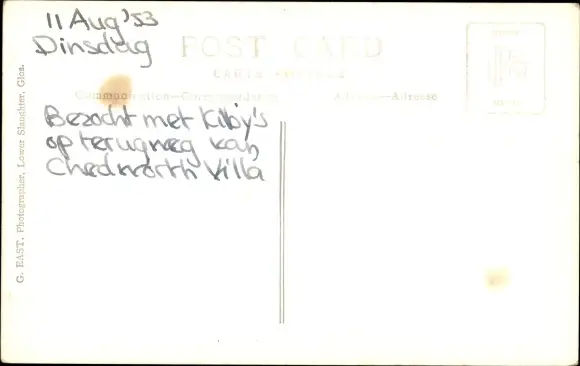 11 Aug '53
Dinsdag
POST CARD
CARTE POSTALE
Communication—Correspondance
Adresse—Adress
Bezocht met Kilby's
op terugweg van
Chedworth Villa
G. EAST, Photographer, Lower Slaughter, Glos.